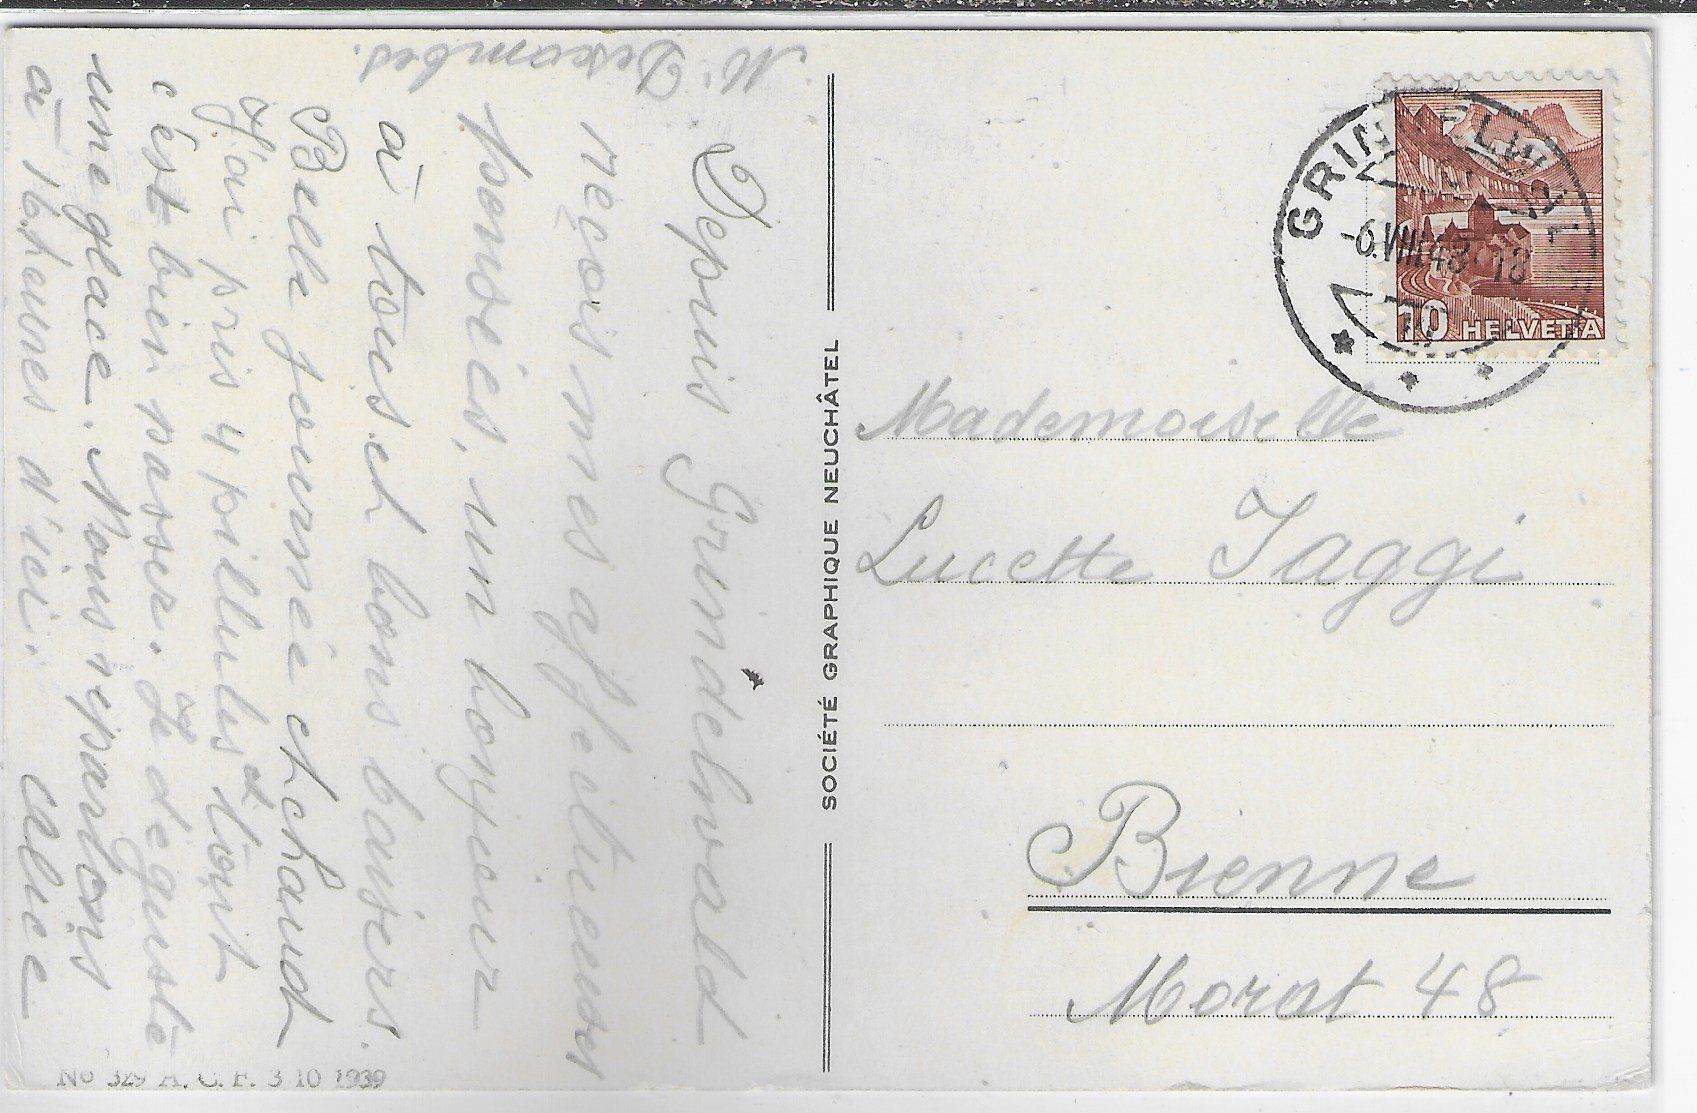 Depuis Grindelwald
reçois mes affectueuses
pensées, un bonjour
à tous et bons baisers.
M. Descombes.
Belle journée et chaud
J'ai pris 4 pillules et tout
c'est bien passer. Je déguste
une glace. Nous repartons
à 16 heures d'ici.
alice
SOCIÉTÉ GRAPHIQUE NEUCHÂTEL
No 329 A. C. F. 3 10 1939
GRINDELWALD
-6.VIII.43-18
10 HELVETIA
Mademoiselle
Lucette Jaggi
Bienne
Morat 48